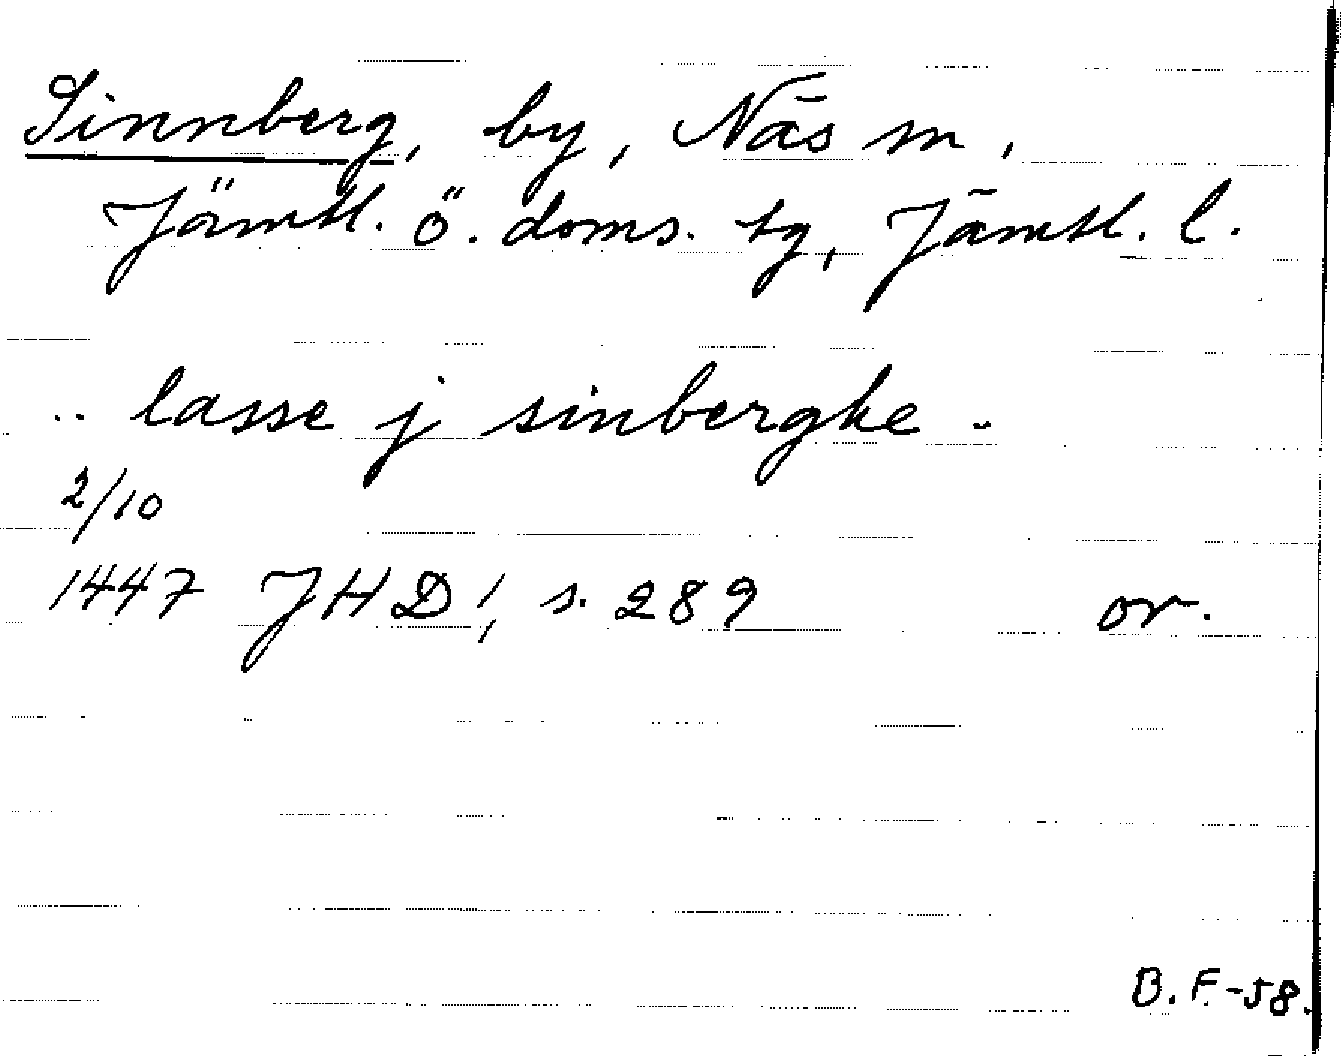 Sinnberg, by, Näs sn,
Jämtl. ö. doms. tg, Jämtl. l.
.. lasse j sinberghe ..
2/10
1447 JHD 1, s. 289 or.
B.F.-58.